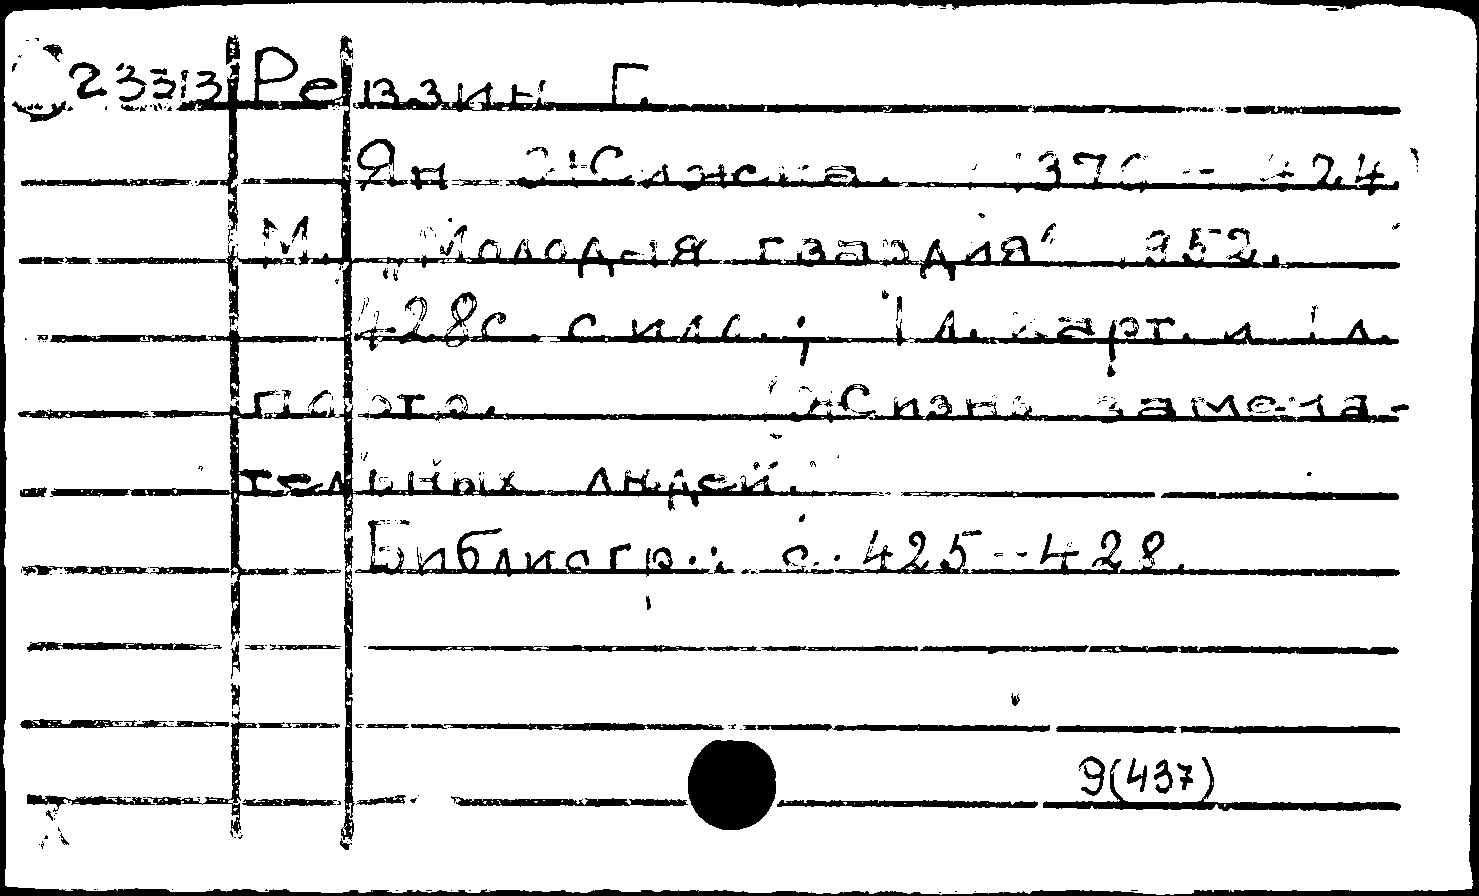 23313 Ревзин Г.
Ян Жижка. (1376 – 1424)
М. „Молодая гвардия“ 1952.
428с. с илл.; 1 л. карт. и 1 л.
портр. (Жизнь замеча-
тельных людей).
Библиогр.: с. 425–428.
9(437)